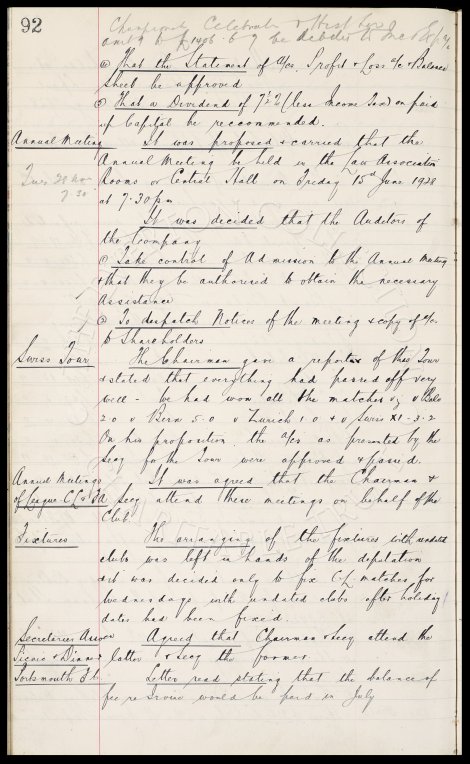 92
Championship Celebration &
amtg to £1406. 6. 7 be debited to
(a) That the Statement of a/cs, Profit & Loss a/c & Balance
Sheet be approved
(b) That a Dividend of 7½% (less Income Tax) on paid
up Capital be reccommended.
Annual Meeting It was proposed & carried that the
Annual Meeting be held in the Law Association
Rooms or Central Hall on Friday 15th June 1928
at 7.30 pm
7.30
It was decided that the Auditors of
the Company
(a) Take control of Admission to the Annual Meeting
& that they be authorised to obtain the necessary
Assistance
(b) To despatch Notices of the meeting & copy of a/cs.
to Shareholders
Swiss Tour The Chairman gave a report of this Tour
& stated that everything had passed off very
well - we had won all the matches, v Bale
2.0 v Bern 5.0 v Zurich 1.0 & v Swiss XI 3.2
On his proposition, the a/cs as presented by the
Secy for the Tour were approved & passed.
Annual Meetings It was agreed that the Chairman &
of League C.L. & FA Secy attend these meetings on behalf of the
Club.
Fixtures The arranging of the fixtures with undated
clubs was left in hands of the deputation
& it was decided only to fix C.L. matches for
Wednesdays with undated clubs after holiday
dates had been fixed.
Secretaries Assocn Agreed that Chairman & Secy attend the
Picnic & Dinner latter & Secy the former.
Portsmouth F.C. Letter read stating that the balance of
fee re Irvine would be paid in July